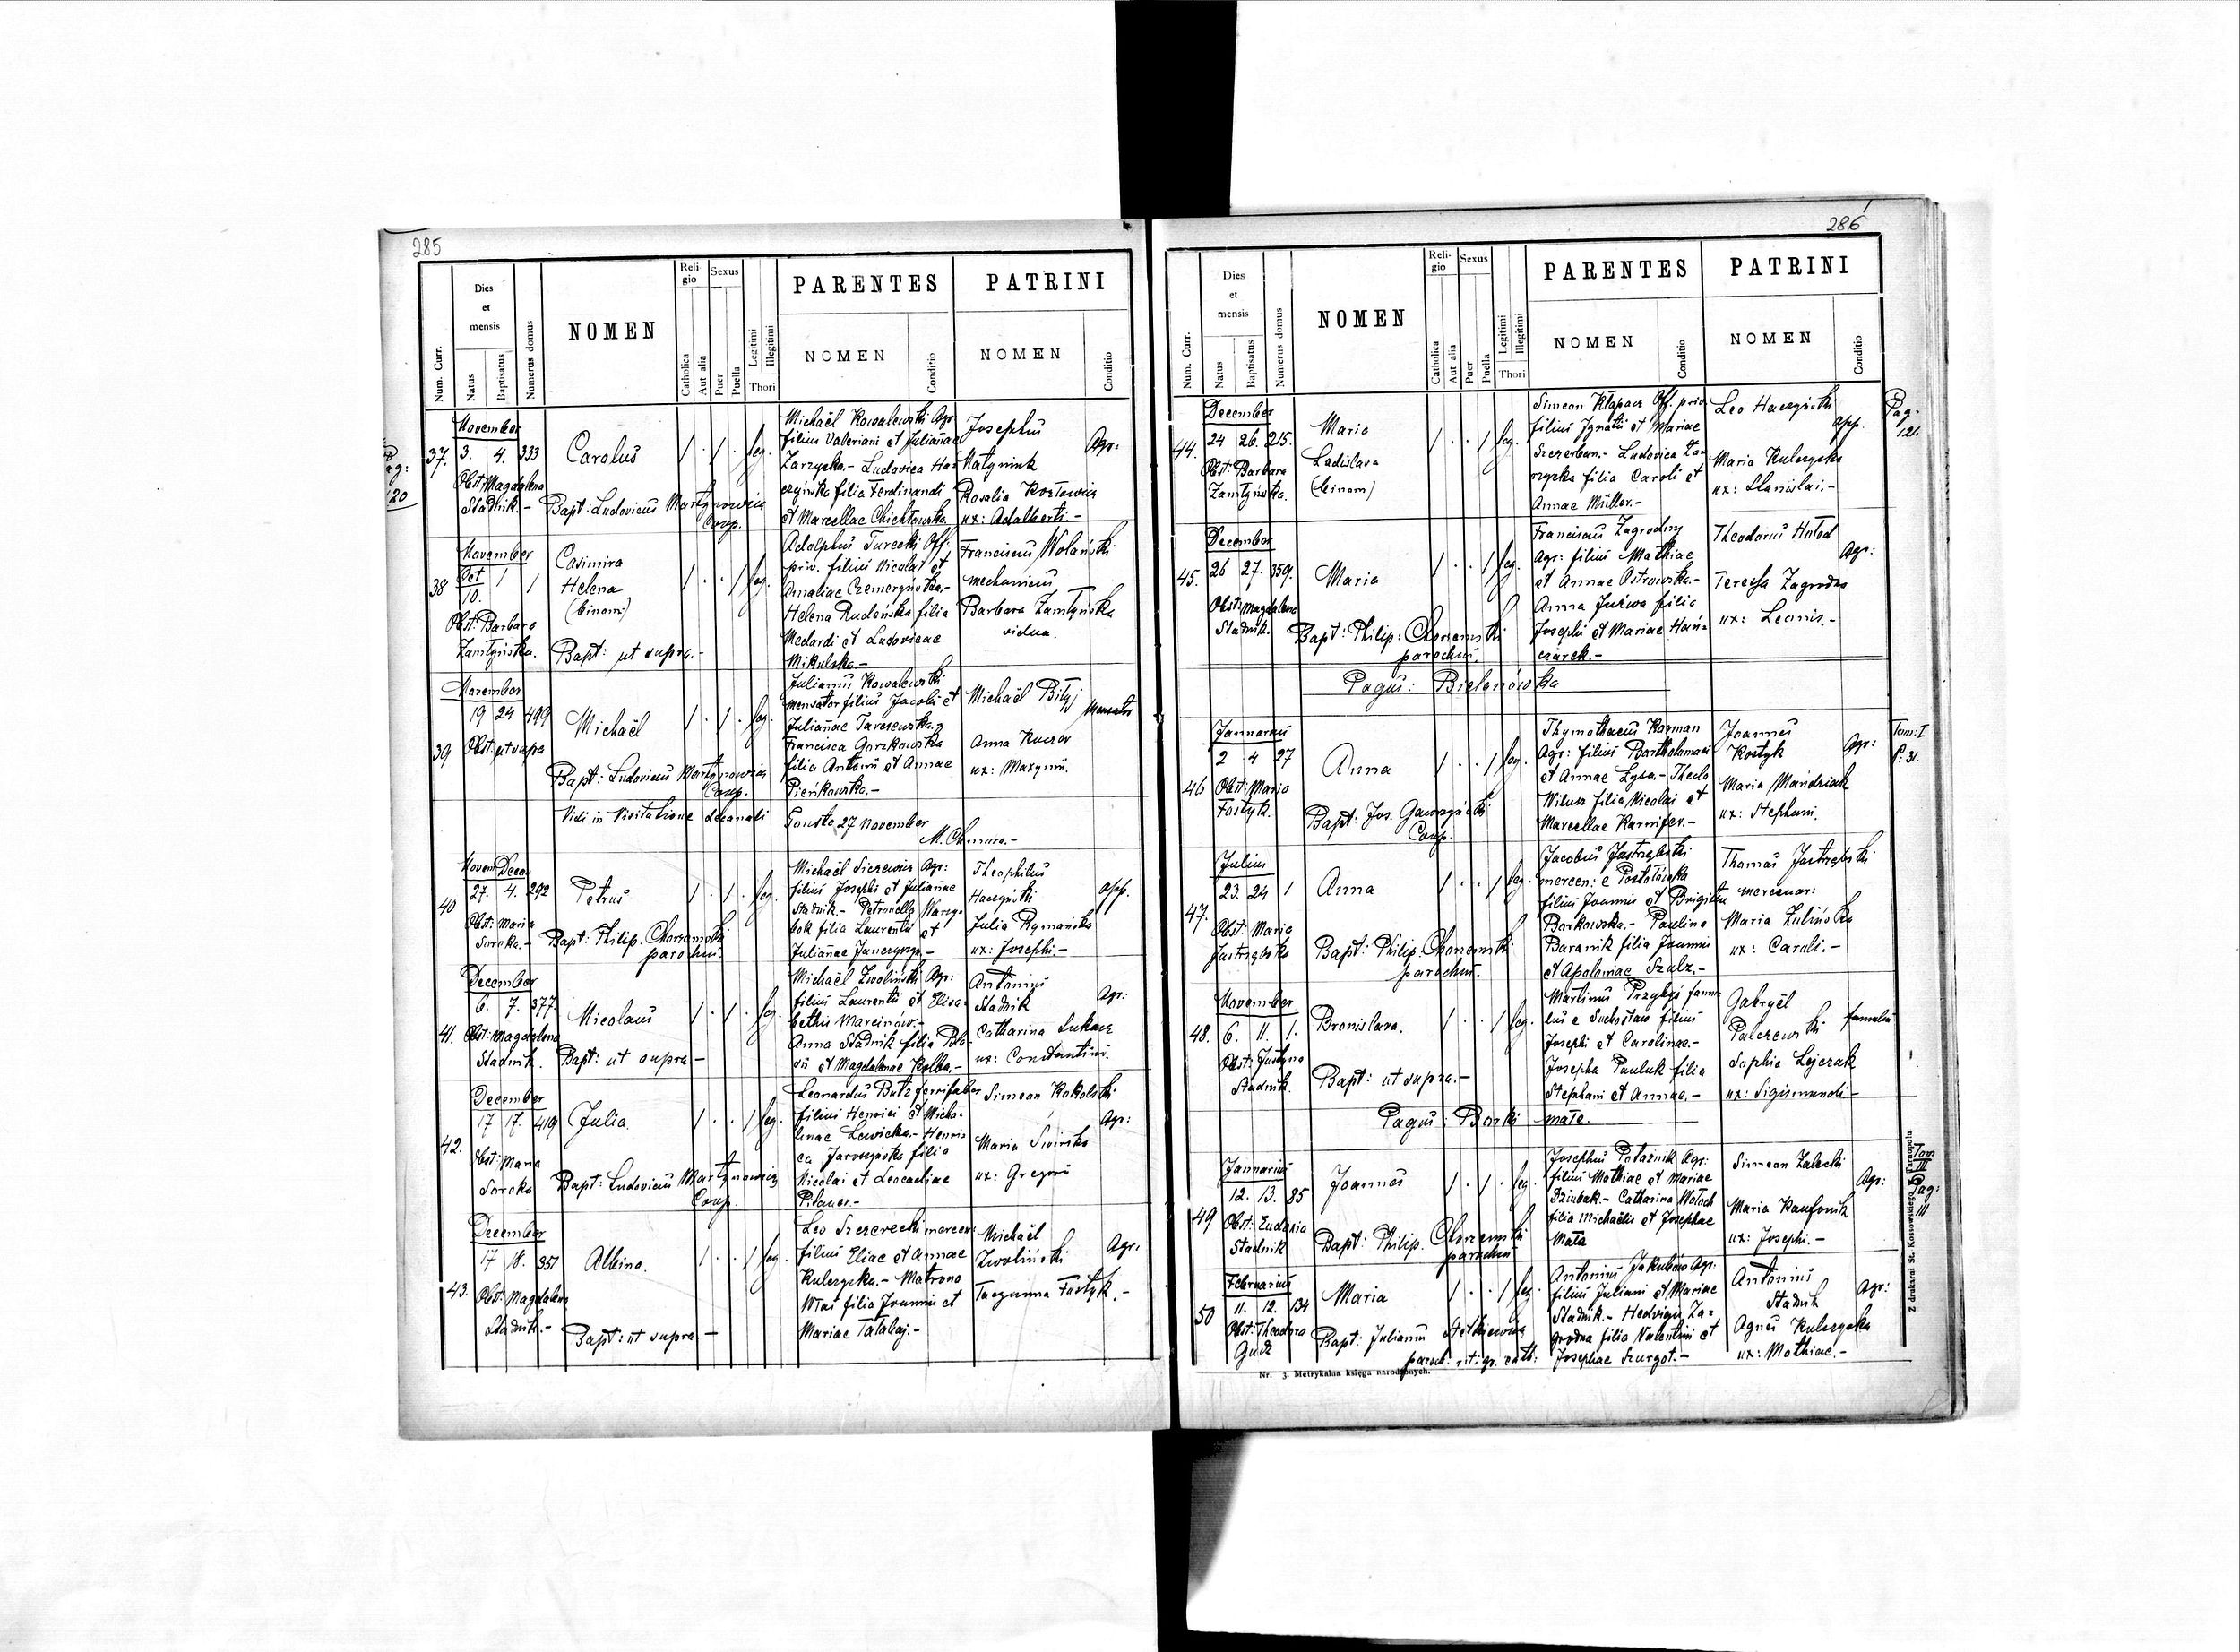 285
Num. Curr.
Dies
et
mensis
Natus
Baptisatus
Numerus domus
NOMEN
Reli-
gio
Catholica
Aut alia
Sexus
Puer
Puella
Legitimi
Illegitimi
Thori
PARENTES
NOMEN
Conditio
PATRINI
NOMEN
Conditio
Pag:
120
37.
November
3. 4. 333
Obst: Magdalena
Stadnik.-
Carolus
1 . 1 . leg.
Bapt: Ludovicus Martynowicz
Coop.
Michaël Kowalewski Agr
filius Valeriani et Julianae
Zarzycka.- Ludovica Ha-
czyńska filia Ferdinandi
et Marcellae Chichłowska.
Josephus
Matyniuk
Agr:
Rosalia Kozłowicz
ux: Adalberti.-
38
November
Oct
10. 1 1
Obst: Barbara
Zamłyńska.
Casimira
Helena
(binom:)
1 . . 1 leg.
Bapt: ut supra.-
Adolphus Turecki Off.
priv. filius Nicolai et
Amaliae Czemeryńska.-
Helena Rudeńska filia
Medardi et Ludovicae
Mikulska.-
Franciscus Wolański
mechanicus
Barbara Zamłyńska
vidua.
39
November
19 24 499
Obst: ut supra
Michaël
1 . 1 . leg.
Bapt: Ludovicus Martynowicz
Coop.
Julianus Kowalewski
mensator filius Jacobi et
Julianae Tarczewska.-
Francisca Gorzkowska
filia Antonii et Annae
Pieńkowska.-
Michaël Biłyj
Mensator
Anna Kuczer
ux: Maxymi.
Vidi in Visitatione decanali
Touste 27 November
M. Chmura.-
40
Novem Decem
27. 4. 292
Obst: Maria
Soroka.-
Petrus
1 . 1 . leg.
Bapt: Philip. Chorzemski
parochus.
Michaël Siczewis Agr:
filius Josephi et Julianae
Stadnik.- Petronella Warzy-
bok filia Laurentii et
Julianae Janczyszyn.-
Theophilus
Haczyński
opp.
Julia Rymańska
ux: Josephi.-
41.
December
6. 7. 377
Obst: Magdalena
Stadnik.
Nicolaus
1 . 1 . leg.
Bapt: ut supra -
Michaël Zwoliński Agr:
filius Laurentii et Elisa-
bethis Marcinów.-
Anna Stadnik filia Bla-
sii et Magdalenae Kolba.-
Antonius
Stadnik
Agr:
Catharina Lukasz
ux: Constantini.
42.
December
17 17. 419
Obst: Maria
Soroka
Julia.
1 . . 1 leg.
Bapt: Ludovicus Martynowicz
Coop.
Leonardus Butz ferrifaber
filius Henrici et Micha-
linae Lewicka.- Henri-
ca Jaroszyńska filia
Nicolai et Leocadiae
Pilauer.-
Simeon Kokolski
Agr:
Maria Siwirska
ux: Gregorii
43.
December
17 18. 351
Obst: Magdalena
Stadnik.-
Albina.
1 . . 1 leg.
Bapt: ut supra -
Leo Szczerecki mercen:
filius Eliae et Annae
Kulczycka.- Matrona
Wlas filia Joannis et
Mariae Tatabaj.-
Michaël
Zwoliński
Agr.
Taczanna Fostyk.-
286
Num. Curr.
Dies
et
mensis
Natus
Baptisatus
Numerus domus
NOMEN
Reli-
gio
Catholica
Aut alia
Sexus
Puer
Puella
Legitimi
Illegitimi
Thori
PARENTES
NOMEN
Conditio
PATRINI
NOMEN
Conditio
Pag.
121.
44.
December
24 26. 215.
Obst: Barbara
Zamłyńska.
Maria
Ladislava
(binom)
1 . . 1 leg.
Simeon Kłapacz Off. priv.
filius Ignatii et Mariae
Szczerban.- Ludovica Za-
rzycka filia Caroli et
Annae Müller.-
Leo Haczyński
opp.
Maria Kulczycka
ux: Stanislai.-
45.
December
26 27. 359.
Obst: Magdalena
Stadnik.
Maria
1 . . 1 leg.
Bapt: Philip: Chorzemski
parochus.
Franciscus Zagrodny
Agr: filius Mathiae
et Annae Ostrowska.-
Anna Juźwa filia
Josephi et Mariae Hań-
czarek.-
Theodorus Hołod
Agr:
Teressa Zagrodna
ux: Leonis.-
Pagus: Bielanówka
46
Januarius
2 4 27
Obst: Maria
Fostyk.
Anna
1 . . 1 leg.
Bapt: Jos. Gawrzyński
Coop.
Thymothaeus Korman
Agr: filius Bartholomaei
et Annae Łysa.- Thecla
Wilusz filia Nicolai et
Marcellae Karnifer.-
Joannes
Kostyk
Agr:
Maria Mandziak
ux: Stephani.
Tom: I
P. 31.
47.
Julius
23. 24 1
Obst: Maria
Jastrzębska
Anna
1 . . 1 leg.
Bapt: Philip. Chorzemski
parochus.
Jacobus Jastrzębski
mercen: e Postołówka
filius Joannis et Brigittae
Borkowska.- Paulina
Baranik filia Joannis
et Apoloniae Szulz.-
Thomas Jastrzębski
mercenar:
Maria Zulińska
ux: Caroli.-
48.
November
6. 11. 1.
Obst: Justyna
Stadnik.
Bronislava.
1 . . 1 leg.
Bapt: ut supra.-
Martinus Przybyś famu-
lus e Suchostaw filius
Josephi et Carolinae.-
Josepha Pauluk filia
Stephani et Annae.-
Gabryël
Palczewski
famulus
Sophia Lejczak
ux: Sigismundi-
Pagus: Borki małe.
49
Januarius
12. 13. 85
Obst: Eudoxia
Stadnik
Joannes
1 . 1 . leg.
Bapt: Philip. Chorzemski
parochus
Josephus Potaźnik Agr:
filius Mathiae et Mariae
Dziubak.- Catharina Wołoch
filia Michaëlis et Josephae
Mała
Simeon Zalecki
Agr:
Maria Kaufonik
ux: Josephi.-
Tom
III
Pag:
111
50
Februarius
11. 12. 134
Obst: Theodora
Gudz
Maria
1 . . 1 leg.
Bapt: Julianus Stetkiewicz
paroch: rit: gr. cath:
Antonius Jakubów Agr.
filius Juliani et Mariae
Stadnik.- Hedvigis Za-
grodna filia Valentini et
Josephae Szurgot.-
Antonius
Stadnik
Agr:
Agnes Kulczycka
ux: Mathiae.-
Nr. 3. Metrykalna księga narodzonych.
Z drukarni St. Kossowskiego Tarnopolu